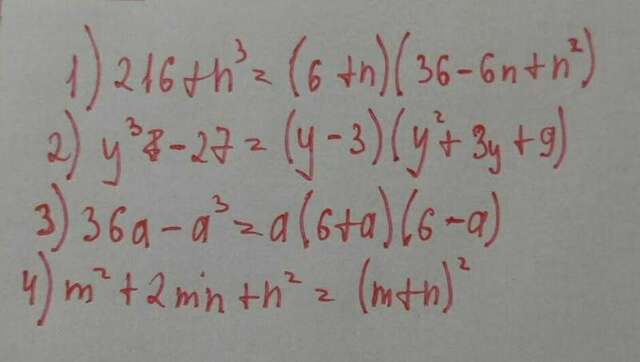 1) 216 + n³ = (6 + n)(36 - 6n + n²)
2) y³ - 27 = (y - 3)(y² + 3y + 9)
3) 36a - a³ = a(6 + a)(6 - a)
4) m² + 2mn + n² = (m + n)²